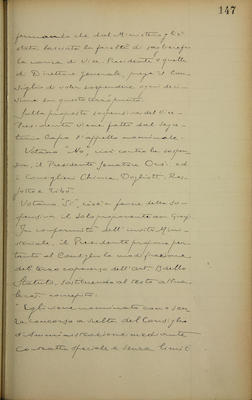 147
formando che dal Ministero gli è
stata lasciata la facoltà di scegliere fra
la carica di Vice-Presidente e quella
di Direttore Generale, prega il Con-
siglio di voler sospendere ogni deci-
sione su questo terzo punto.
Sulla proposta sospensiva del Vice-
Presidente viene fatto dal Segre-
tario Capo l'appello nominale.
Votano "No", cioè contro la sospen-
siva, il Presidente Senatore Orsi ed
i Consiglieri Chimera, Dogliotti, Ras-
Votano "Si", cioè a favore della so-
spensiva il solo proponente
In conformità dell'invito Mini-
steriale, il Presidente propone per-
tanto al Consiglio la modificazione
del terzo capoverso dell'art. dello
Statuto, sostituendo al testo attua-
le il seguente:
"Egli viene nominato con o sen-
za concorso a scelta del Consiglio
d'Amministrazione mediante
contratto speciale e senza limiti